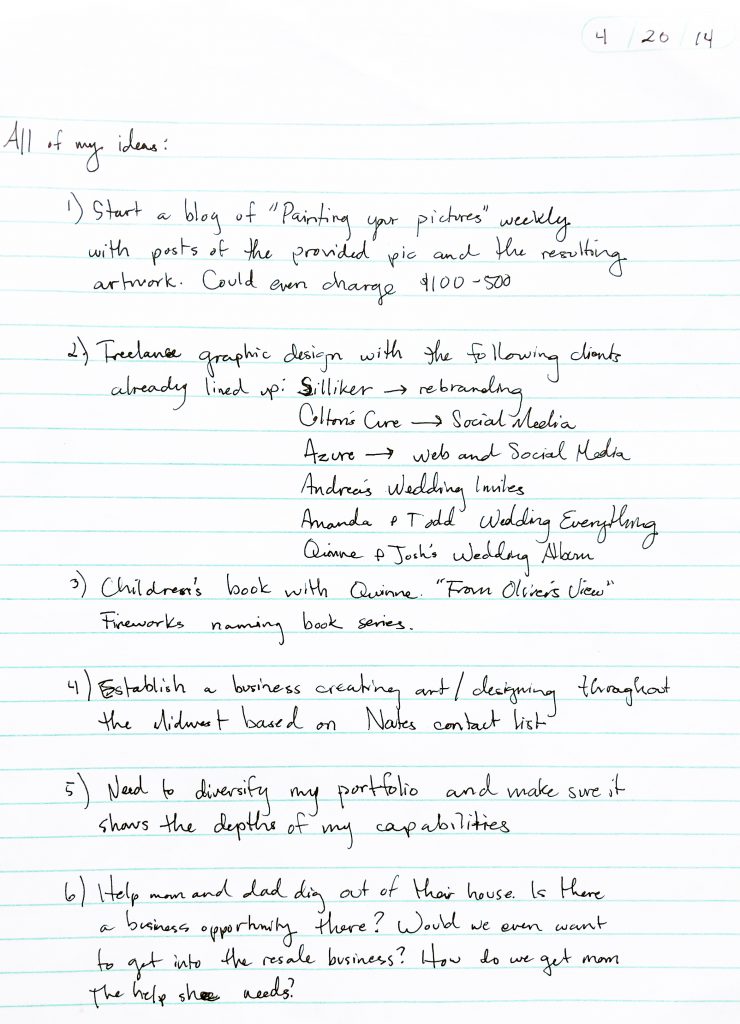 4 / 20 / 14
All of my ideas:
1) Start a blog of "Painting your pictures" weekly
with posts of the provided pic and the resulting
artwork. Could even charge $100-500
2) Freelance graphic design with the following clients
already lined up: Silliker → rebranding
Colton's Cure → Social Media
Azure → web and Social Media
Andrea's Wedding Invites
Amanda & Todd Wedding Everything
Quinne & Josh's Wedding Album
3) Children's book with Quinne. "From Oliver's View"
Fireworks naming book series.
4) Establish a business creating art/designing throughout
the Midwest based on Nates contact list
5) Need to diversify my portfolio and make sure it
shows the depths of my capabilities
6) Help mom and dad dig out of their house. Is there
a business opportunity there? Would we even want
to get into the resale business? How do we get mom
the help she needs?